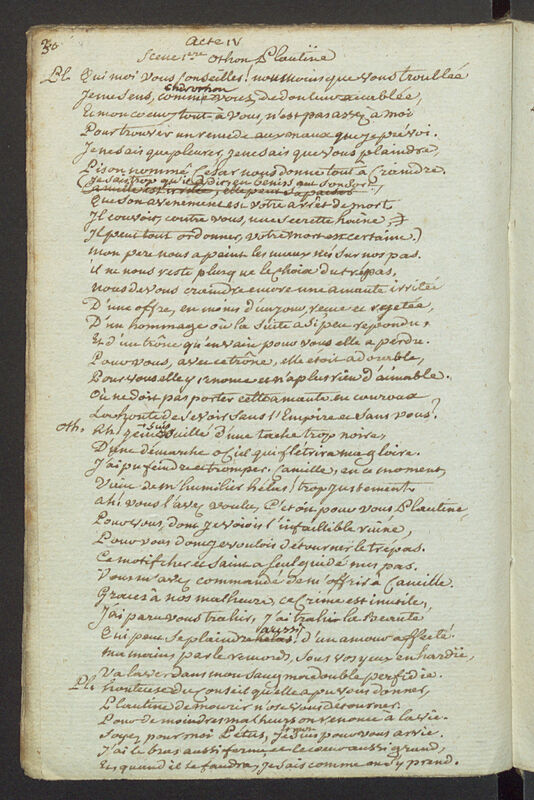 30
Acte IV
Scene 1ere Othon Plautine
Pl. Qui moi vous conseiller! non mais que vous troublée
Je me sens, cher othon, comme vous, de douleur accablée,
Et mon cœur tout à vous, n'est pas assez à moi
Pour trouver un remede aux maux que je prevoi.
Je ne sais que pleurer, je ne sais que vous plaindre.
Pison nommé Cesar nous donne tout à Craindre.
(Je sais trop qu'il a dit, en
Camille est irritée, elle peut s'apaiser
Que son avenement est votre arrêt de mort
Il couvoit, contre vous, une secrette haine,
Il peut tout ordonner, votre mort est certaine.)
mon pere nous a peint les maux nés sur nos pas.
il ne nous reste plus que le choix du trépas.
nous devons craindre encore une amante irritée
D'une offre, en moins d'un jour, reçue et rejetée,
D'un hommage où la suite a si peu repondu,
Et d'un trône qu'en vain pour vous elle a perdu.
Pour vous, avec ce trône, elle étoit adorable,
Pour vous elle y renonce et n'a plus rien d'aimable.
Où ne doit pas porter cette amante en couroux
La honte de se voir sans l'Empire et sans vous?
oth. Ah! je suis souillé d'une tache trop noire,
D'une démarche oh ciel qui flétrira ma gloire.
J'ai pu feindre et tromper. Camille, en ce moment,
Vient de m'humilier hélas! trop justement
ah! vous l'avez voulu, C'etoit pour vous Plautine,
Pour vous, dont je voiois l'infaillible ruine,
Pour vous dont je voulois détourner le trépas.
Ce motif cher et saint a seul guidé mes pas.
Vous m'avez commandé de m'offrir à Camille.
Graces à nos malheurs, ce Crime est inutile,
J'ai paru vous trahir, J'ai trahi la beauté
Qui peut se plaindre hélas aussi d'un amour affecté.
ma main par le remord, sous vos yeux enhardie,
Va laver dans mon sang ma double perfidie.
Pl. honteuse du Conseil qu'elle a pu vous donner,
Plautine de mourir n'ose vous détourner.
Pour de moindres malheurs on renonce à la vie.
Soyez pour moi Petus, Je suis pour vous arrie.
J'ai le bras aussi ferme et le cœur aussi grand,
Et, quand il le faudra, je sais comme on s'y prend.